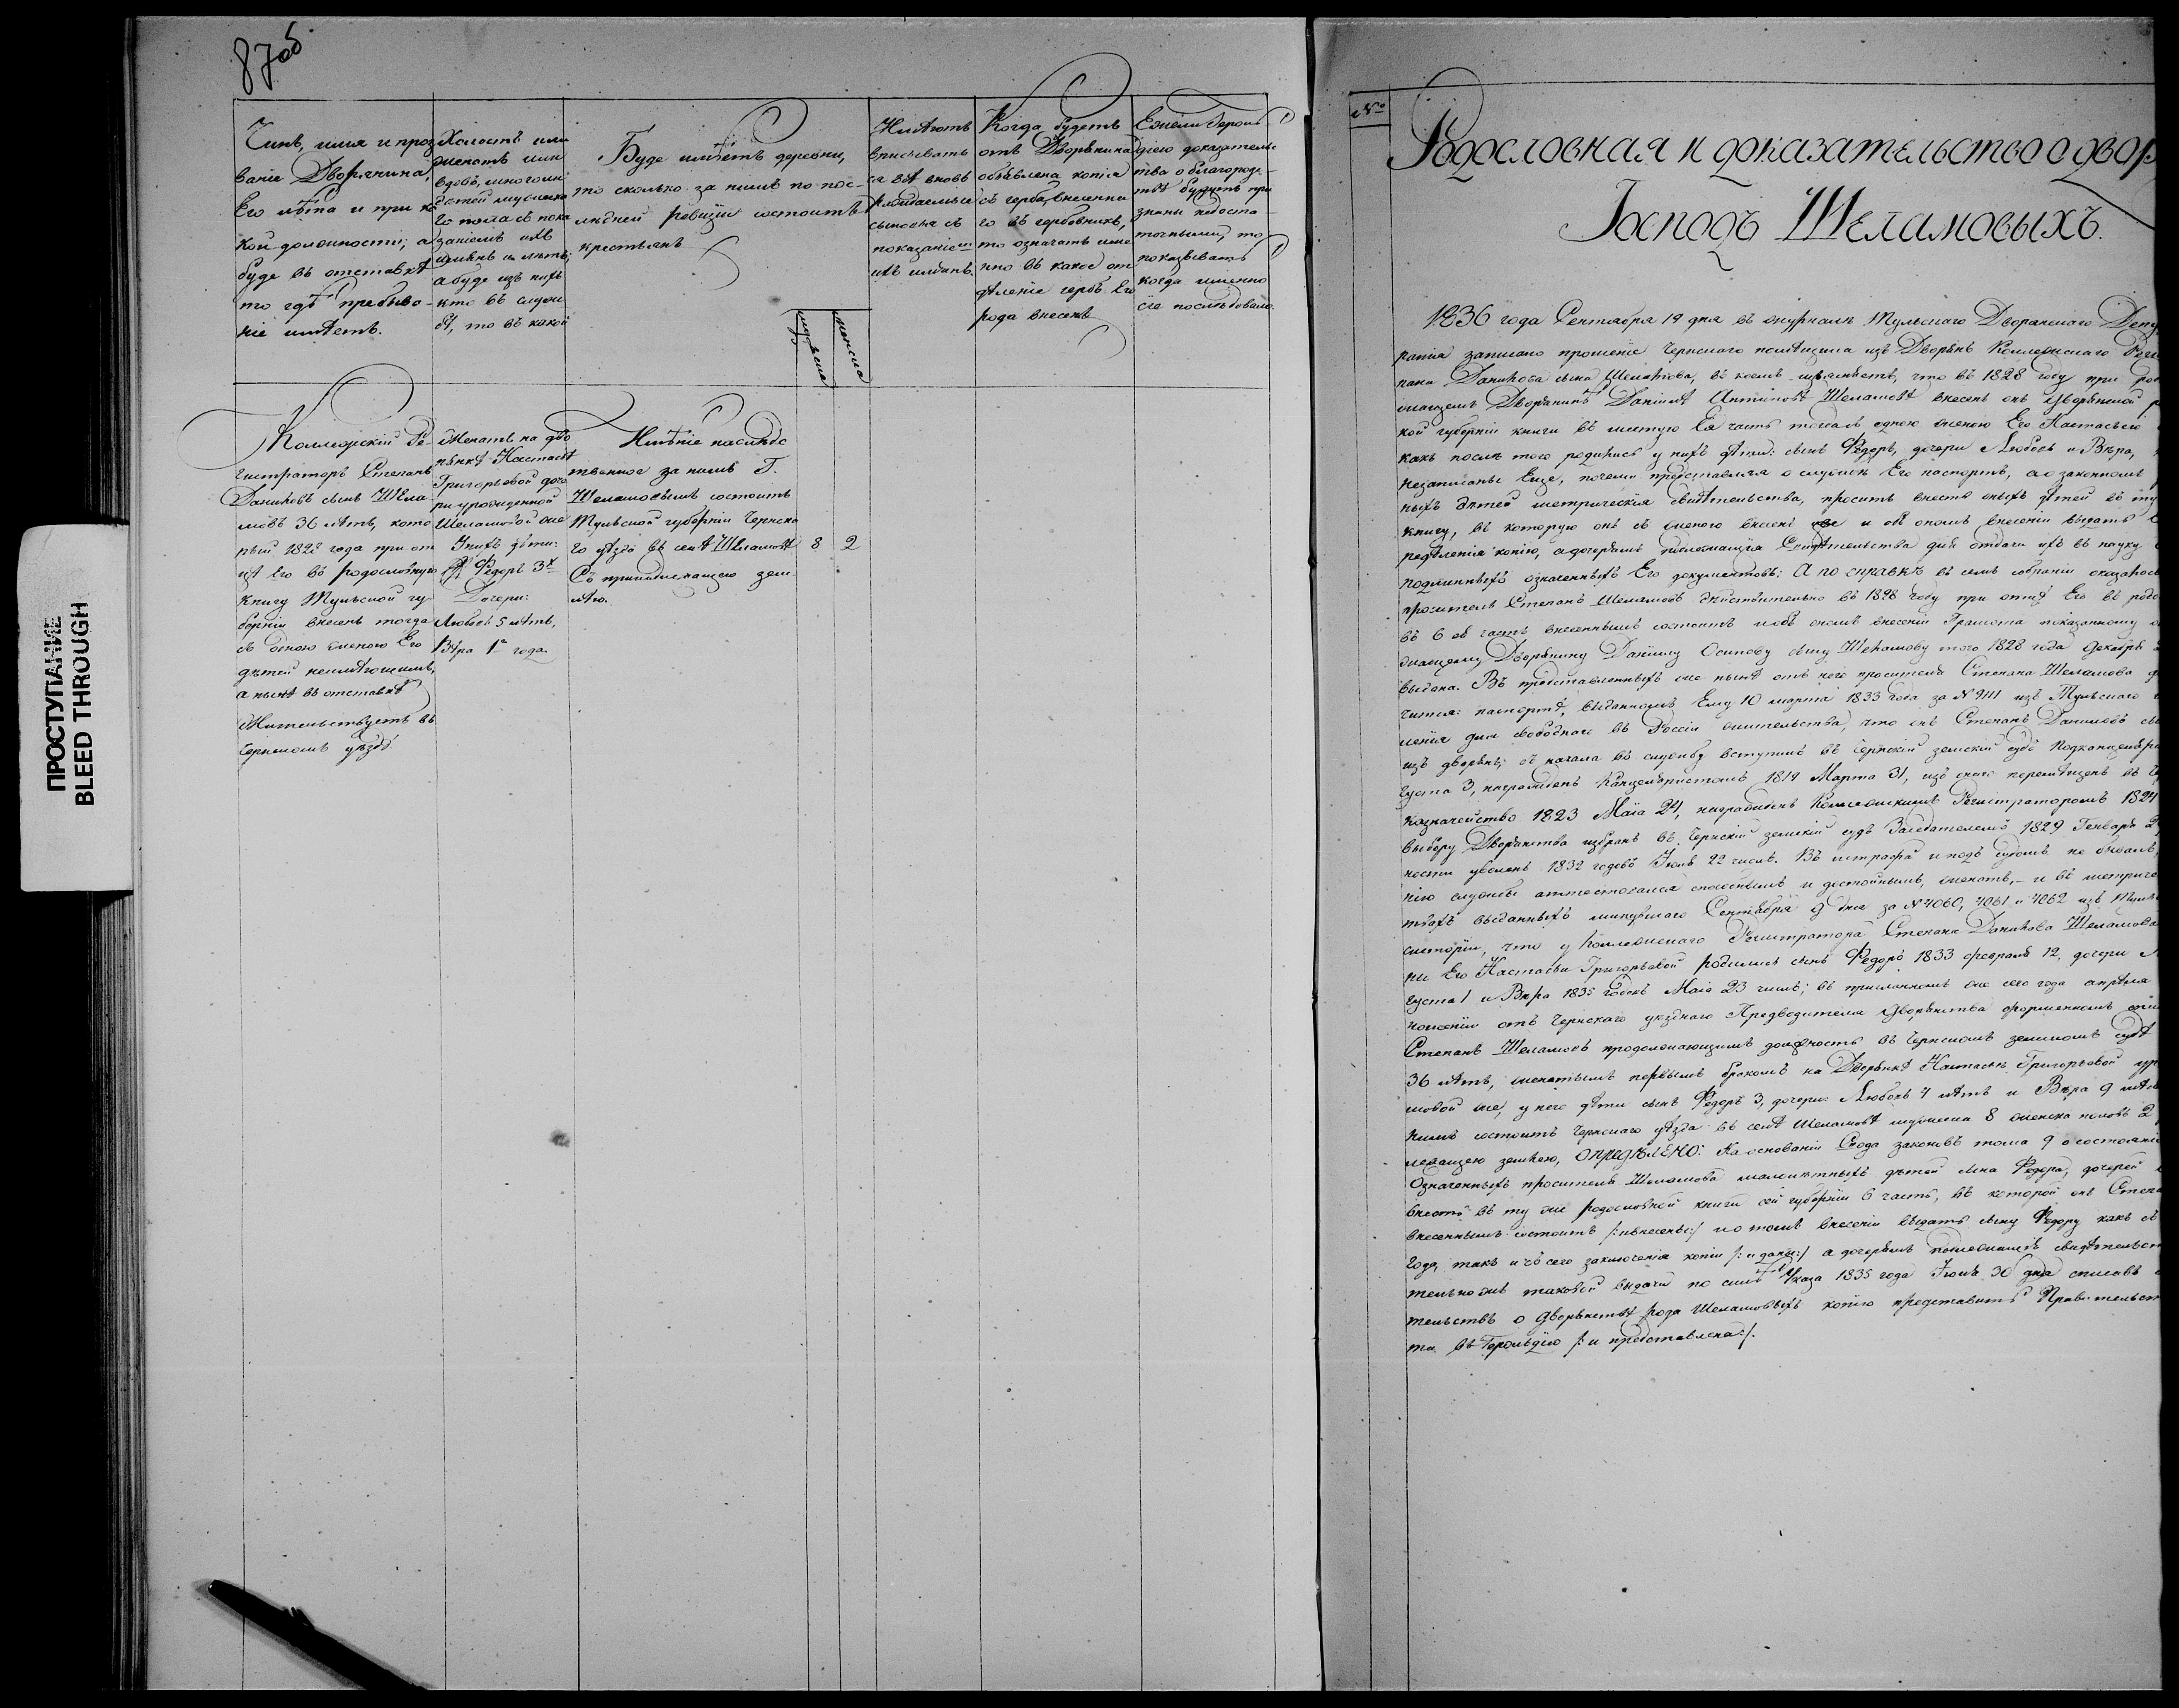 87об
Чинъ, имя и проз
ваніе Дворянина,
Его лѣта и при ка
кой должности; а
буде въ отставкѣ
то гдѣ пребыва-
ніе имѣетъ.
Холостъ или
женатъ или
вдовъ, много ли
дѣтей мужеска
го пола съ пока
заніемъ ихъ
имянъ и лѣтъ;
а буде изъ нихъ
кто въ служ
бѣ, то въ какой
Буде имѣетъ деревни,
то сколько за нимъ по пос-
лѣдней ревизіи состоитъ
крестьянъ
мужеска
женска
Имѣютъ
вписывать
ся всѣ вновь
раждаемые
сыновья съ
показаніемъ
ихъ имянъ.
Когда будетъ
отъ Дворянина
объявлена копія
съ герба, внесенна
го въ гербовникъ,
то означать име
нно въ какое от
дѣленіе гербъ Его
рода внесенъ
Ежели Героль
діею доказатель
тва о благород-
твѣ будутъ при
знаны недоста-
точными, то
показывать
когда именно
сіе послѣдовало.
Коллежскій Ре-
гистраторъ Степанъ
Даниловъ сынъ Шела-
мовъ 36 лѣтъ, кото
рый 1828 года при от
цѣ его въ родословную
книгу Тульской гу-
берніи внесенъ тогда
съ одною женою Его
дѣтей неимѣющимъ,
а нынѣ въ отставкѣ
Жительствуетъ въ
Чернскомъ уѣздѣ.
Женатъ на дво
рянкѣ Настасьѣ
Григорьевой доче
ри урожденной
Шеламовой же
У нихъ дѣти:
Федоръ 3х
Дочери:
Любовь 5 лѣтъ,
Вѣра 1го года.
Имѣніе наслѣдс
твенное за нимъ Г.
Шеламовымъ состоитъ
Тульской губерніи Чернска
го уѣзда въ селѣ Шеламовѣ 8 2
Съ принадлежащею зем-
лею.
№
Родословная и доказательство о двор
Господъ Шеламовыхъ.
1836 года Сентября 19 дня въ журналѣ Тульскаго Дворянскаго Депу
ранія записано прошеніе Чернскаго помѣщика изъ Дворянъ Коллежскаго Реги
пана Данилова сына Шеламова, въ коемъ изъясняетъ, что въ 1828 году при род
жащемъ Дворянинѣ Даниилѣ Шеламовѣ внесенъ онъ Дворянской
кой губерніи книги въ шестую Ея часть токмо съ одною женою Его Настасьею
какъ послѣ того родились у нихъ дѣти: сынъ Федоръ, дочери Любовь и Вѣра,
незаписаны Еще, почему представляя о службѣ Его паспортъ, а о законномъ
ныхъ дѣтей метрическія свидѣтельства, проситъ внесть оныхъ дѣтей въ ту
книгу, въ которую онъ съ женою внесенъ и объ ономъ внесеніи выдать
редѣленія копію, а дочерямъ надлежащія Свидѣтельства для отдачи ихъ въ науку
подлинныхъ означенныхъ Его документовъ: А по справкѣ въ семъ собраніи оказалось
проситель Степанъ Шеламовъ дѣйствительно въ 1828 году при отцѣ Его въ родо
въ 6 ой часть внесеннымъ состоитъ и объ ономъ внесеніи Грамота показанному
жащему Дворянину Даниилу Осипову сыну Шеламову того 1828 года Декабря
выдана. Въ представленныхъ же нынѣ отъ него просителя Степана Шеламова
чится: паспортѣ, выданномъ Ему 10 марта 1833 года за № 9111 изъ Тульскаго
ленія для свободнаго въ Россіи жительства, что онъ Степанъ Даниловъ сы
изъ дворянъ; съ начала въ службу вступилъ въ Чернскій земскій судъ Подканцеляри
густа 3, награжденъ Канцеляристомъ 1819 Марта 31, изъ онаго перемѣщенъ въ
Казначейство 1823 Маія 24, награжденъ Коллежскимъ Регистраторомъ 1824
выбору Дворянства избранъ въ Чернскій земскій судъ Засѣдателемъ 1829 Генваря 2
ности уволенъ 1832 годовъ Іюля 22 числъ. Въ штрафѣ и подъ судомъ не бывалъ,
нію службы аттестовался способнымъ и достойнымъ, женатъ,- и въ метриче
твахъ выданныхъ минувшаго Сентября 9 дня за № 4060, 4061 и 4062 изъ Туль
систоріи, что у Коллежскаго Регистратора Степана Данилова Шеламова
ны Его Настасьи Григорьевой родились сынъ Федоръ 1833 февраля 12, дочери
густа 1 и Вѣра 1835 годовъ Маія 23 числъ; въ присланномъ же сего года апрѣля
ношеніи отъ Чернскаго уѣзднаго Предводителя Дворянства
Степанъ Шеламовъ продолжающимъ должность въ Чернскомъ земскомъ судѣ
36 лѣтъ, женатымъ первымъ бракомъ на Дворянкѣ Настасьѣ Григорьевой ур
мовой же, у него дѣти сынъ Федоръ 3, дочери: Любовь 4 лѣтъ и Вѣра
нимъ состоитъ Чернскаго уѣзда въ селѣ Шеламовѣ мужеска 8 женска половъ 2
лежащею землею, ОПРЕДѢЛЕНО: На основаніи Свода законовъ тома 9 о состояніи
Означенныхъ просителя Шеламова малолѣтныхъ дѣтей сына Федора, дочерей
внесть въ ту же родословной книги сей губерніи 6 часть, въ которой онъ Степа
внесеннымъ состоитъ /:и внесены:/ и о томъ внесеніи выдать сыну Федору какъ съ
года, такъ и съ сего заключенія копіи /:и даны:/ а дочерямъ надлежащія свидѣтельст
тельно жъ таковой выдачи по силѣ Указа 1835 года Іюня 30 дня списавъ
тельствъ о Дворянствѣ рода Шеламовыхъ копію представить Правительст
та въ Герольдію /:и представлена:/.
ПРОСТУПАНИЕ
BLEED THROUGH